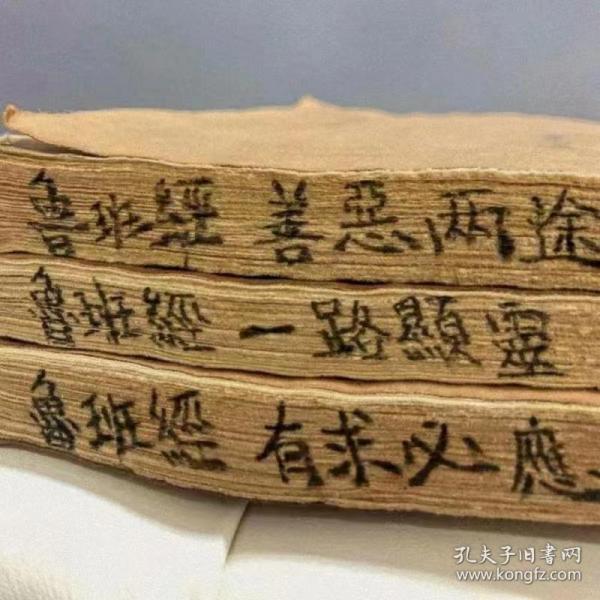 魯班經 善惡两途
魯班經 一路顯靈
魯班經 有求必應
孔夫子旧書网
www.kongfz.com